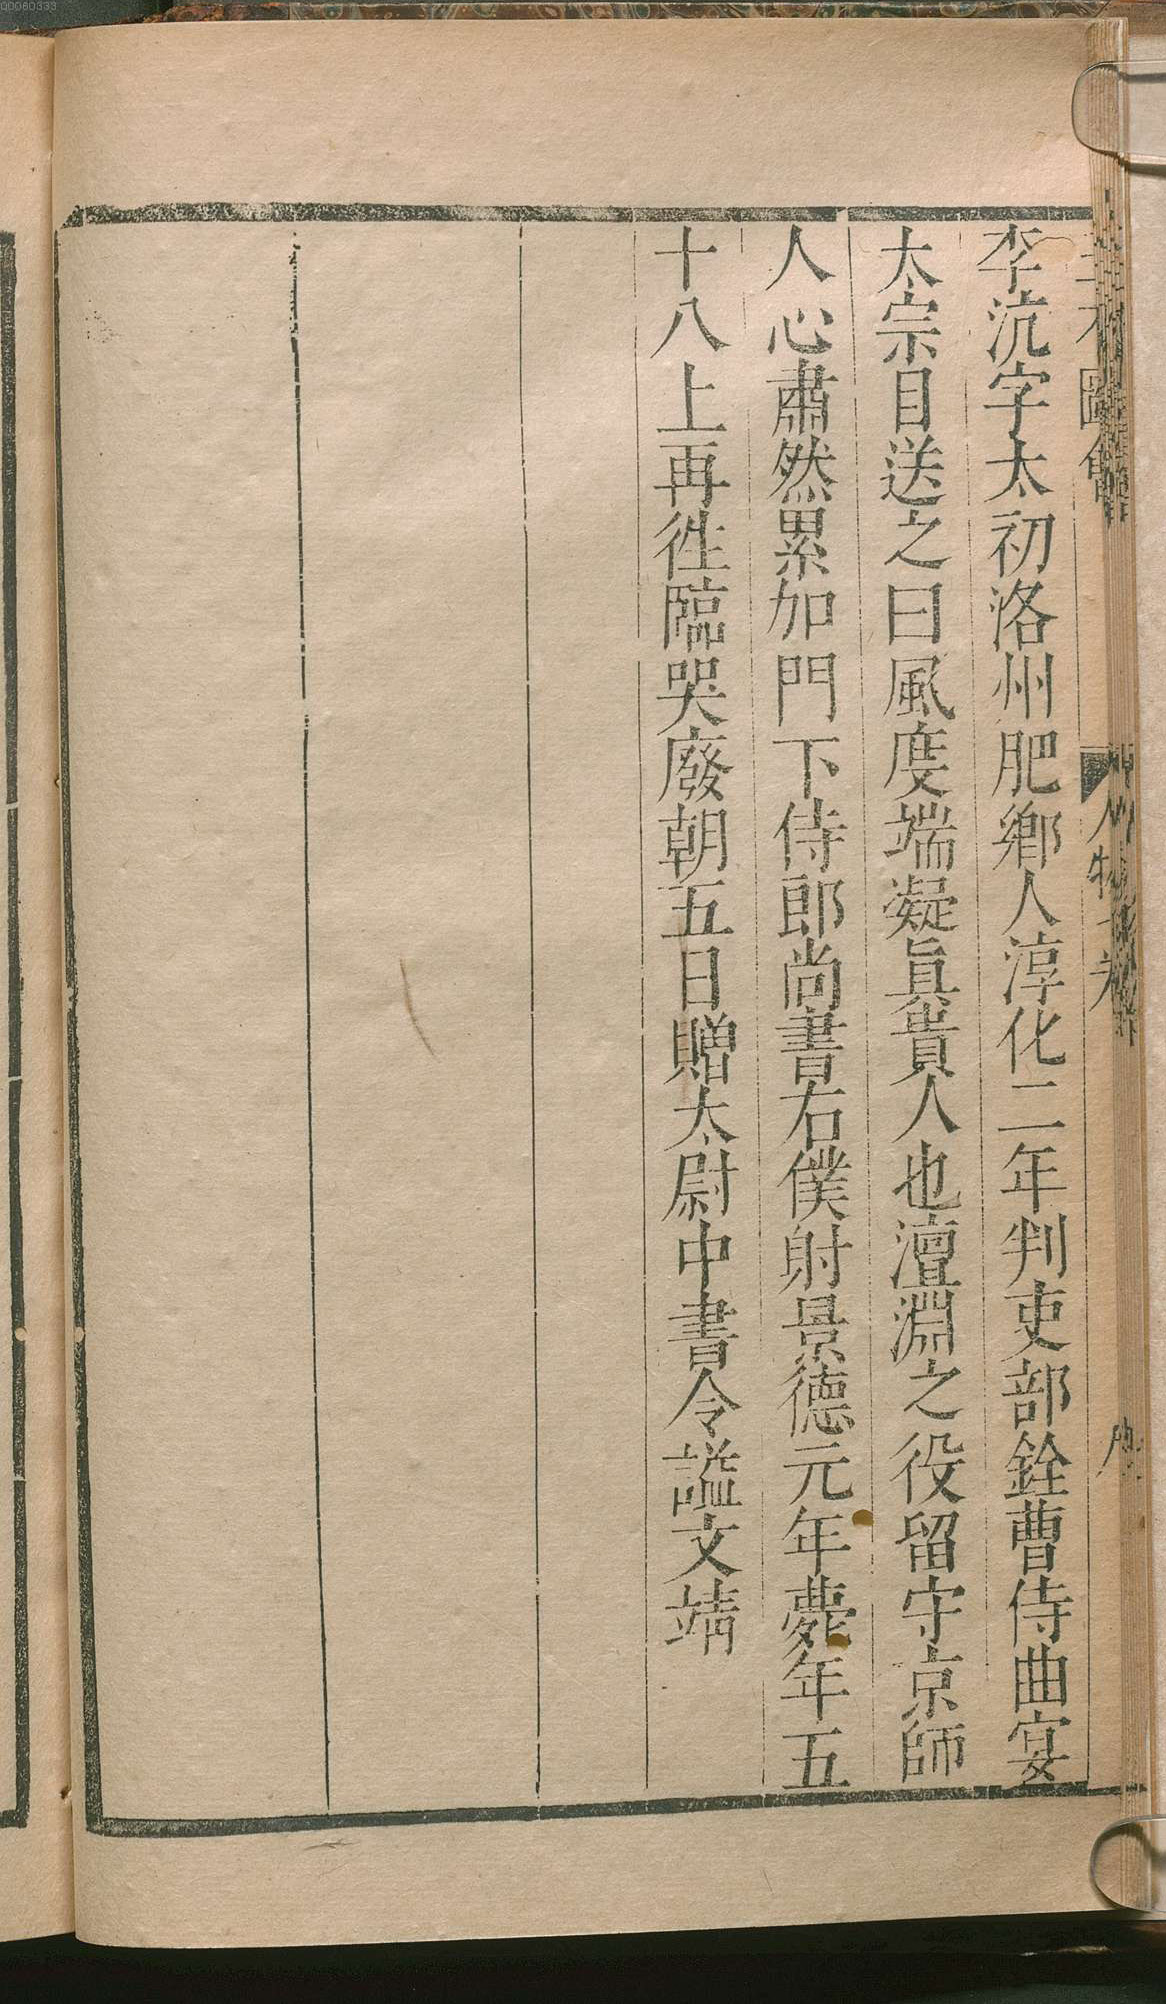 李沆字太初洛州肥鄉人淳化二年判吏部銓曹侍曲宴
太宗目送之曰風度端凝眞貴人也澶淵之役留守京師
人心肅然累加門下侍郎尚書右僕射景德元年薨年五
十八上再徃臨哭廢朝五日贈太尉中書令謚文靖
00060333